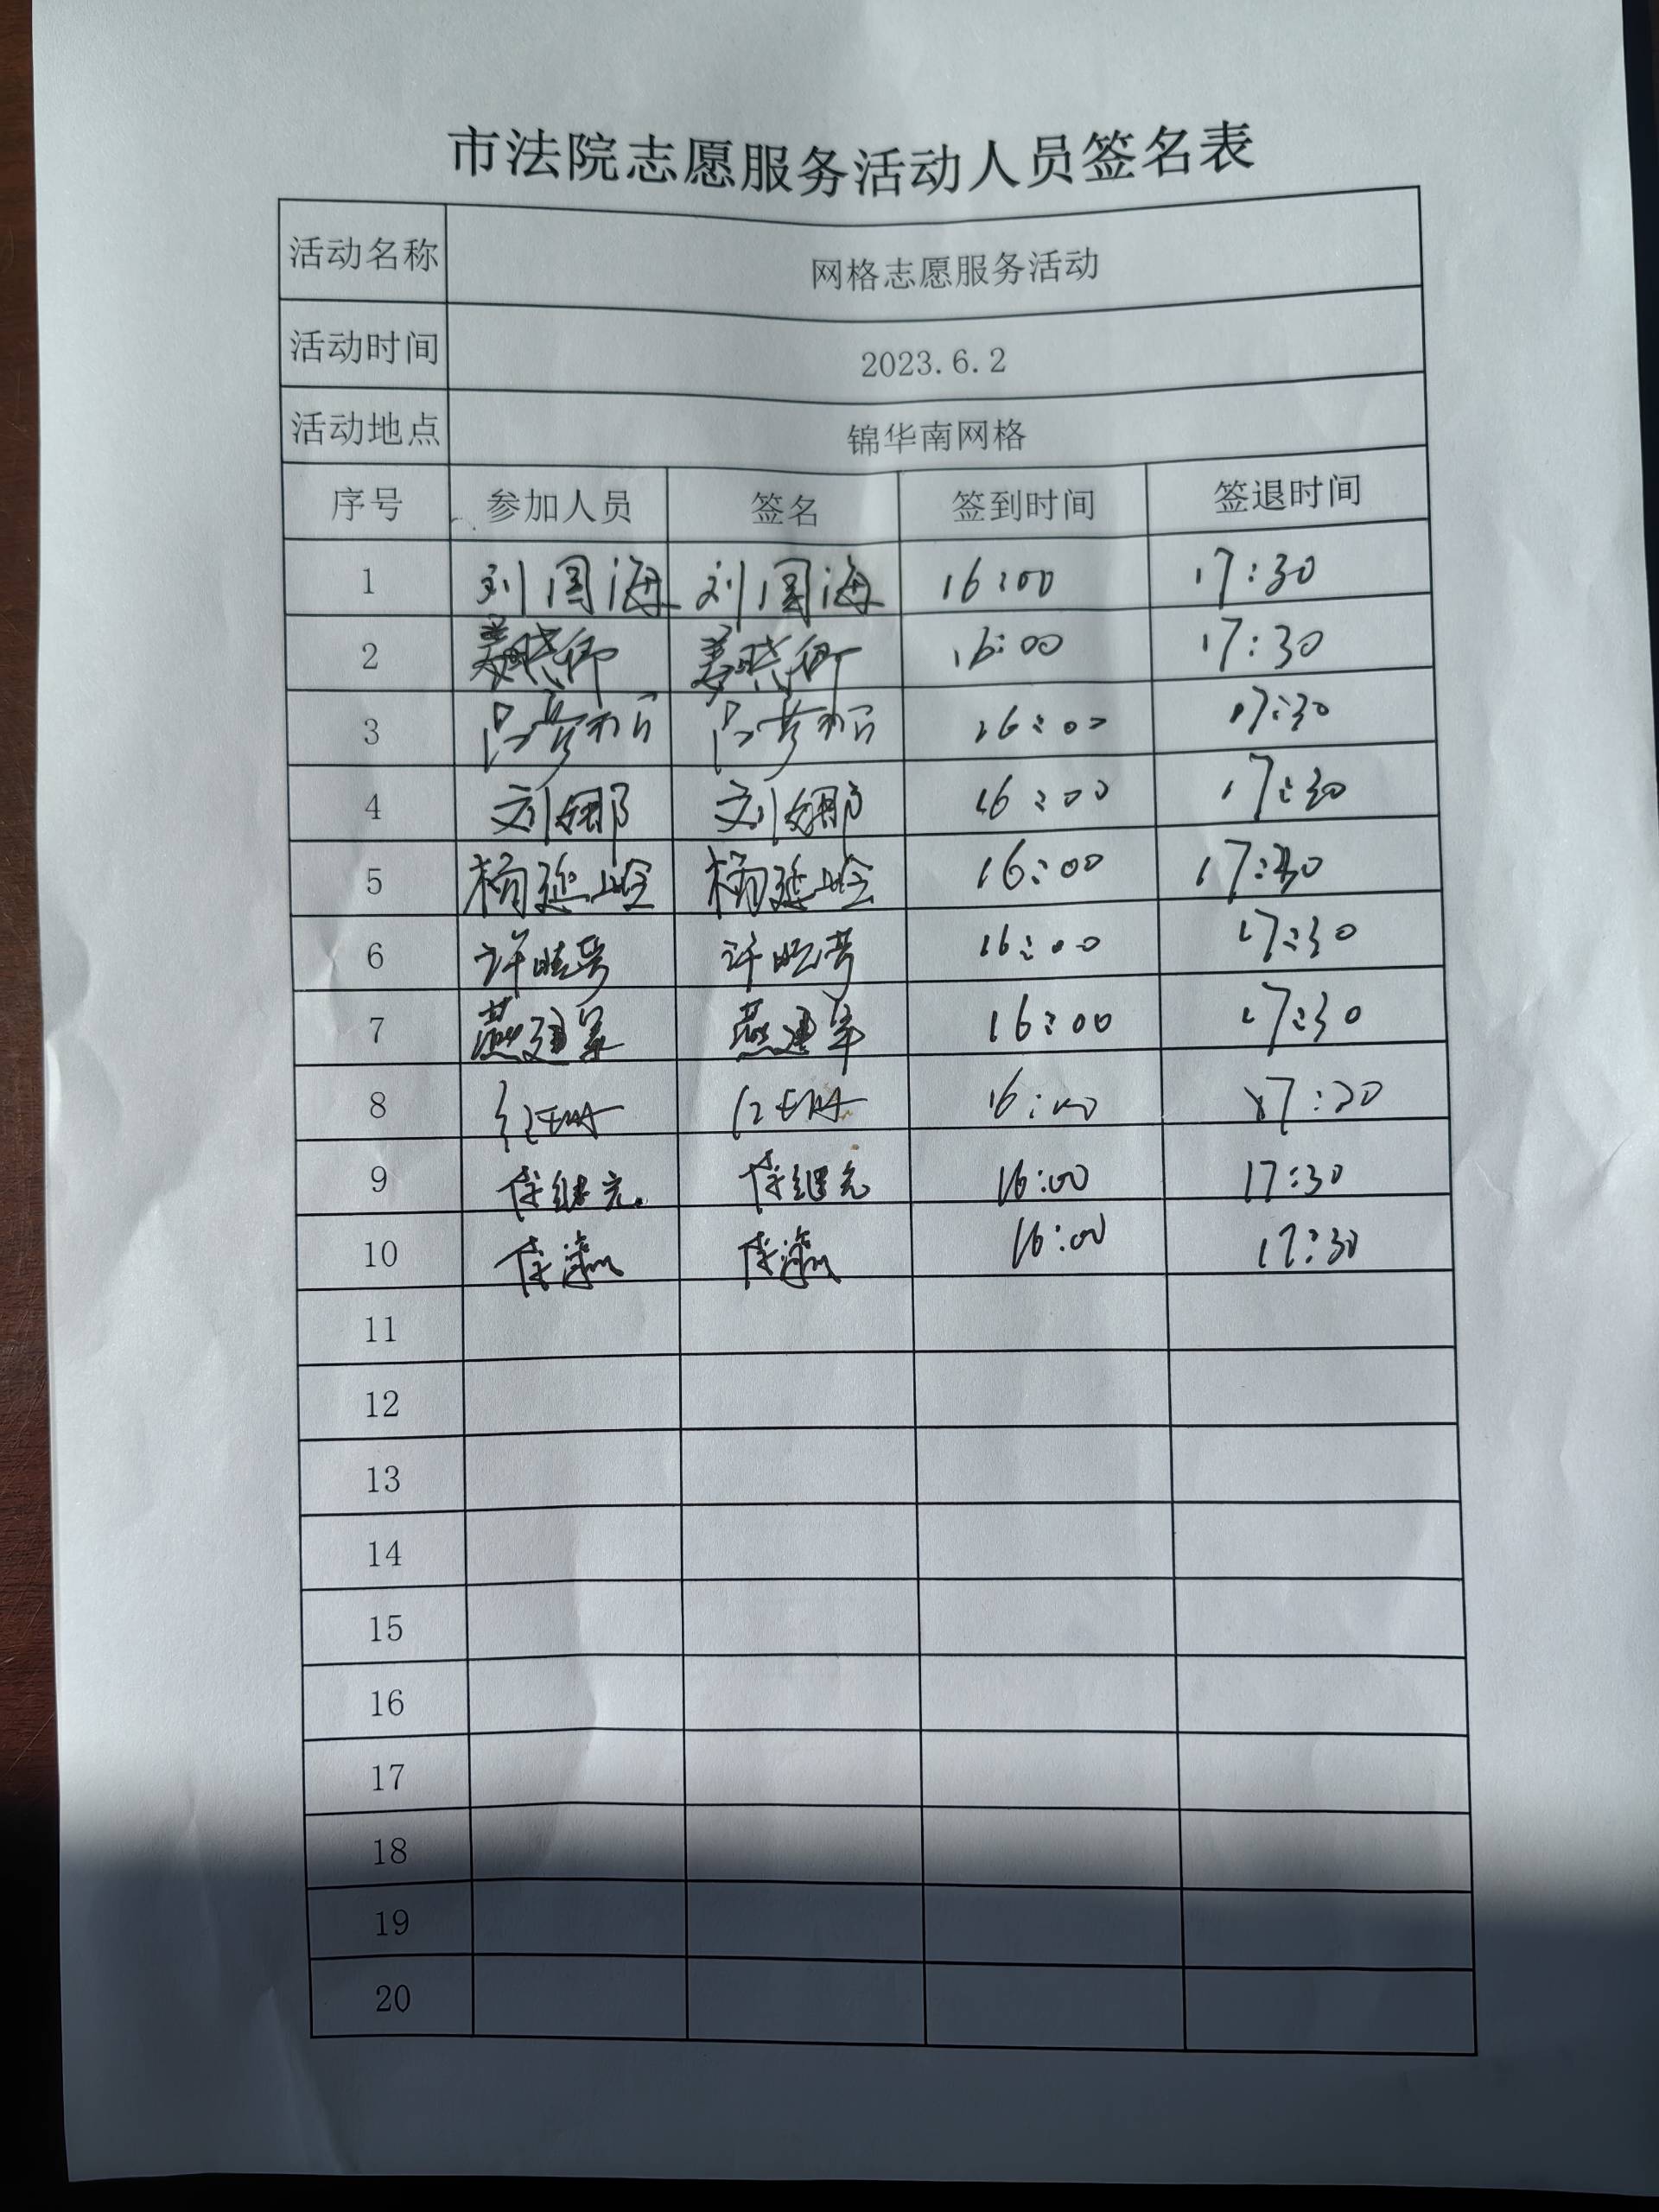 市法院志愿服务活动人员签名表
活动名称 网格志愿服务活动
活动时间 2023.6.2
活动地点 锦华南网格
序号 参加人员 签名 签到时间 签退时间
1 刘国海 刘国海 16:00 17:30
2 姜晓卿 姜晓卿 16:00 17:30
3 16:00 17:30
4 刘娜 刘娜 16:00 17:30
5 杨延 杨延 16:00 17:30
6 许 许 16:00 17:30
7 燕建军 燕建军 16:00 17:30
8 16:00
9 任继元 任继元 16:00 17:30
10 任 任 16:00 17:30
11
12
13
14
15
16
17
18
19
20